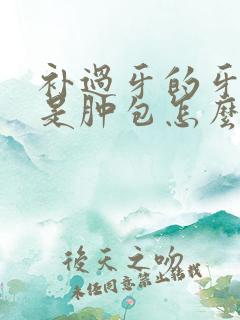 补過牙的牙
是肿包怎麽
後天之吻
未经同意禁止转载